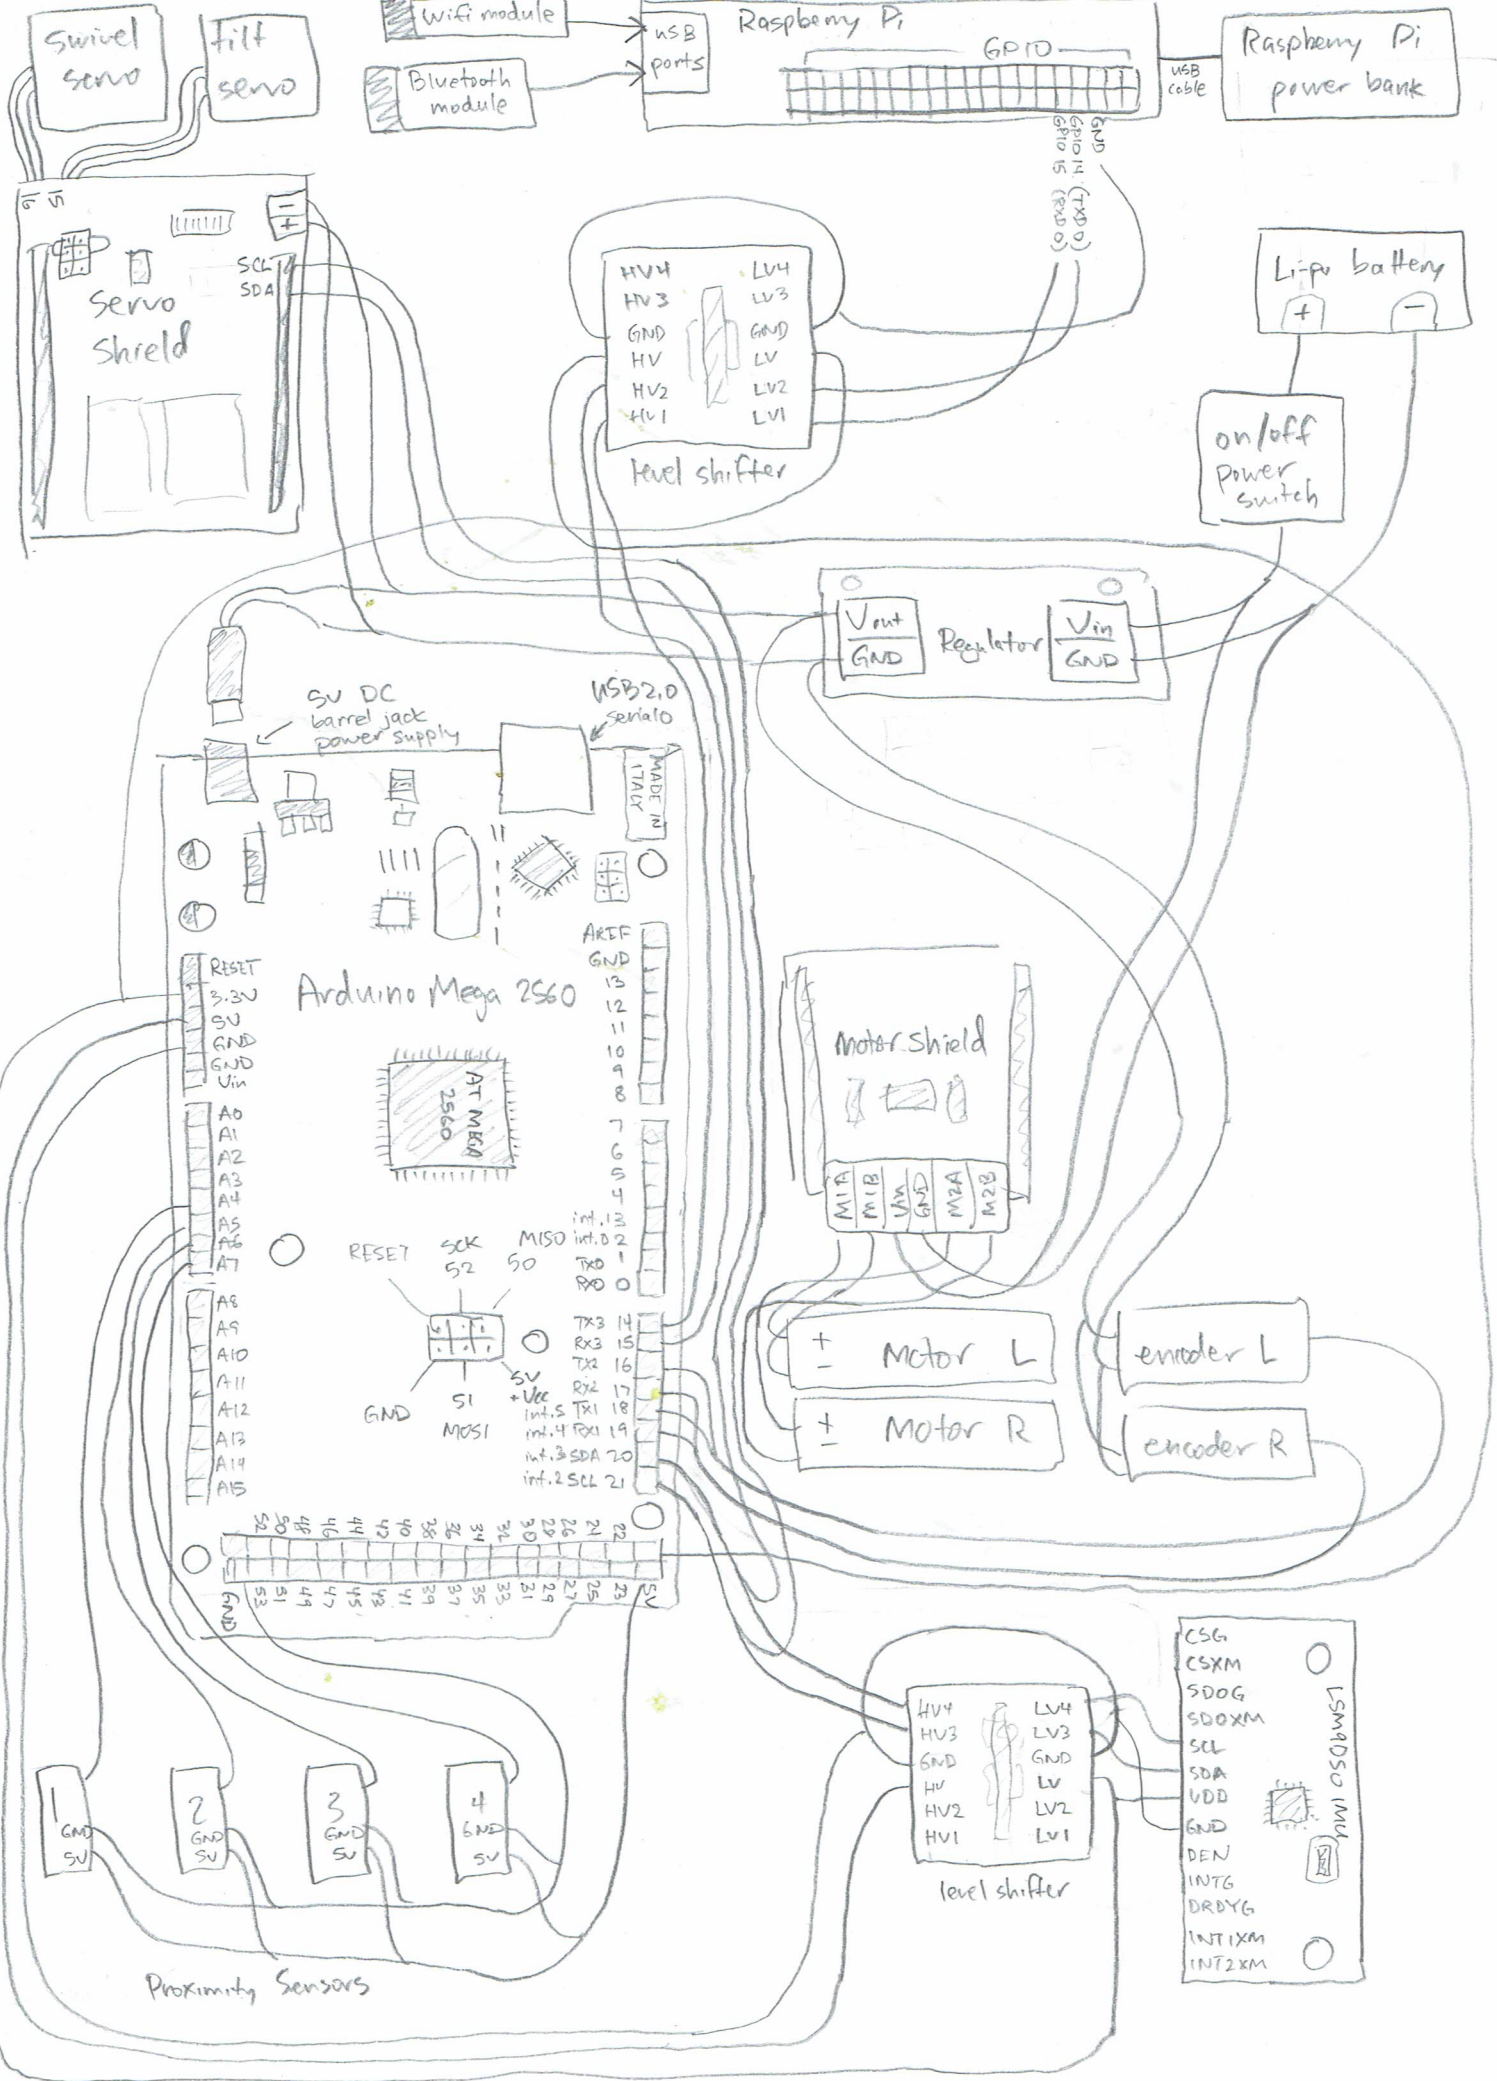 swivel
servo
tilt
servo
Wifi module
Bluetooth
module
USB
ports
Raspberry Pi
GPIO
USB
cable
Raspberry Pi
power bank
GND
GPIO 14 (TXD0)
GPIO 15 (RXD0)
16
15
-
+
SCL
SDA
Servo
Shield
HV4
HV3
GND
HV
HV2
HV1
LV4
LV3
GND
LV
LV2
LV1
level shifter
Li-po battery
+
-
on/off
power
switch
Vout
GND
Regulator
Vin
GND
5V DC
barrel jack
power supply
USB2.0
serial0
MADE IN
ITALY
Arduino Mega 2560
AT MEGA
2560
RESET
3.3V
5V
GND
GND
Vin
A0
A1
A2
A3
A4
A5
A6
A7
A8
A9
A10
A11
A12
A13
A14
A15
AREF
GND
13
12
11
10
9
8
7
6
5
4
int.1 3
int.0 2
TX0 1
RX0 0
TX3 14
RX3 15
TX2 16
RX2 17
int.5 TX1 18
int.4 RX1 19
int.3 SDA 20
int.2 SCL 21
RESET
SCK
52
MISO
50
GND
51
MOSI
5V
+Vcc
52 50 48 46 44 42 40 38 36 34 32 30 28 26 24 22
GND 53 51 49 47 45 43 41 39 37 35 33 31 29 27 25 23 5V
Motor Shield
M1A
M1B
Vin
GND
M2A
M2B
+
-
Motor L
+
-
Motor R
encoder L
encoder R
1
GND
5V
2
GND
5V
3
GND
5V
4
GND
5V
Proximity Sensors
HV4
HV3
GND
HV
HV2
HV1
LV4
LV3
GND
LV
LV2
LV1
level shifter
CSG
CSXM
SDOG
SDOXM
SCL
SDA
VDD
GND
DEN
INTG
DRDYG
INT1XM
INT2XM
LSM9DS0 IMU